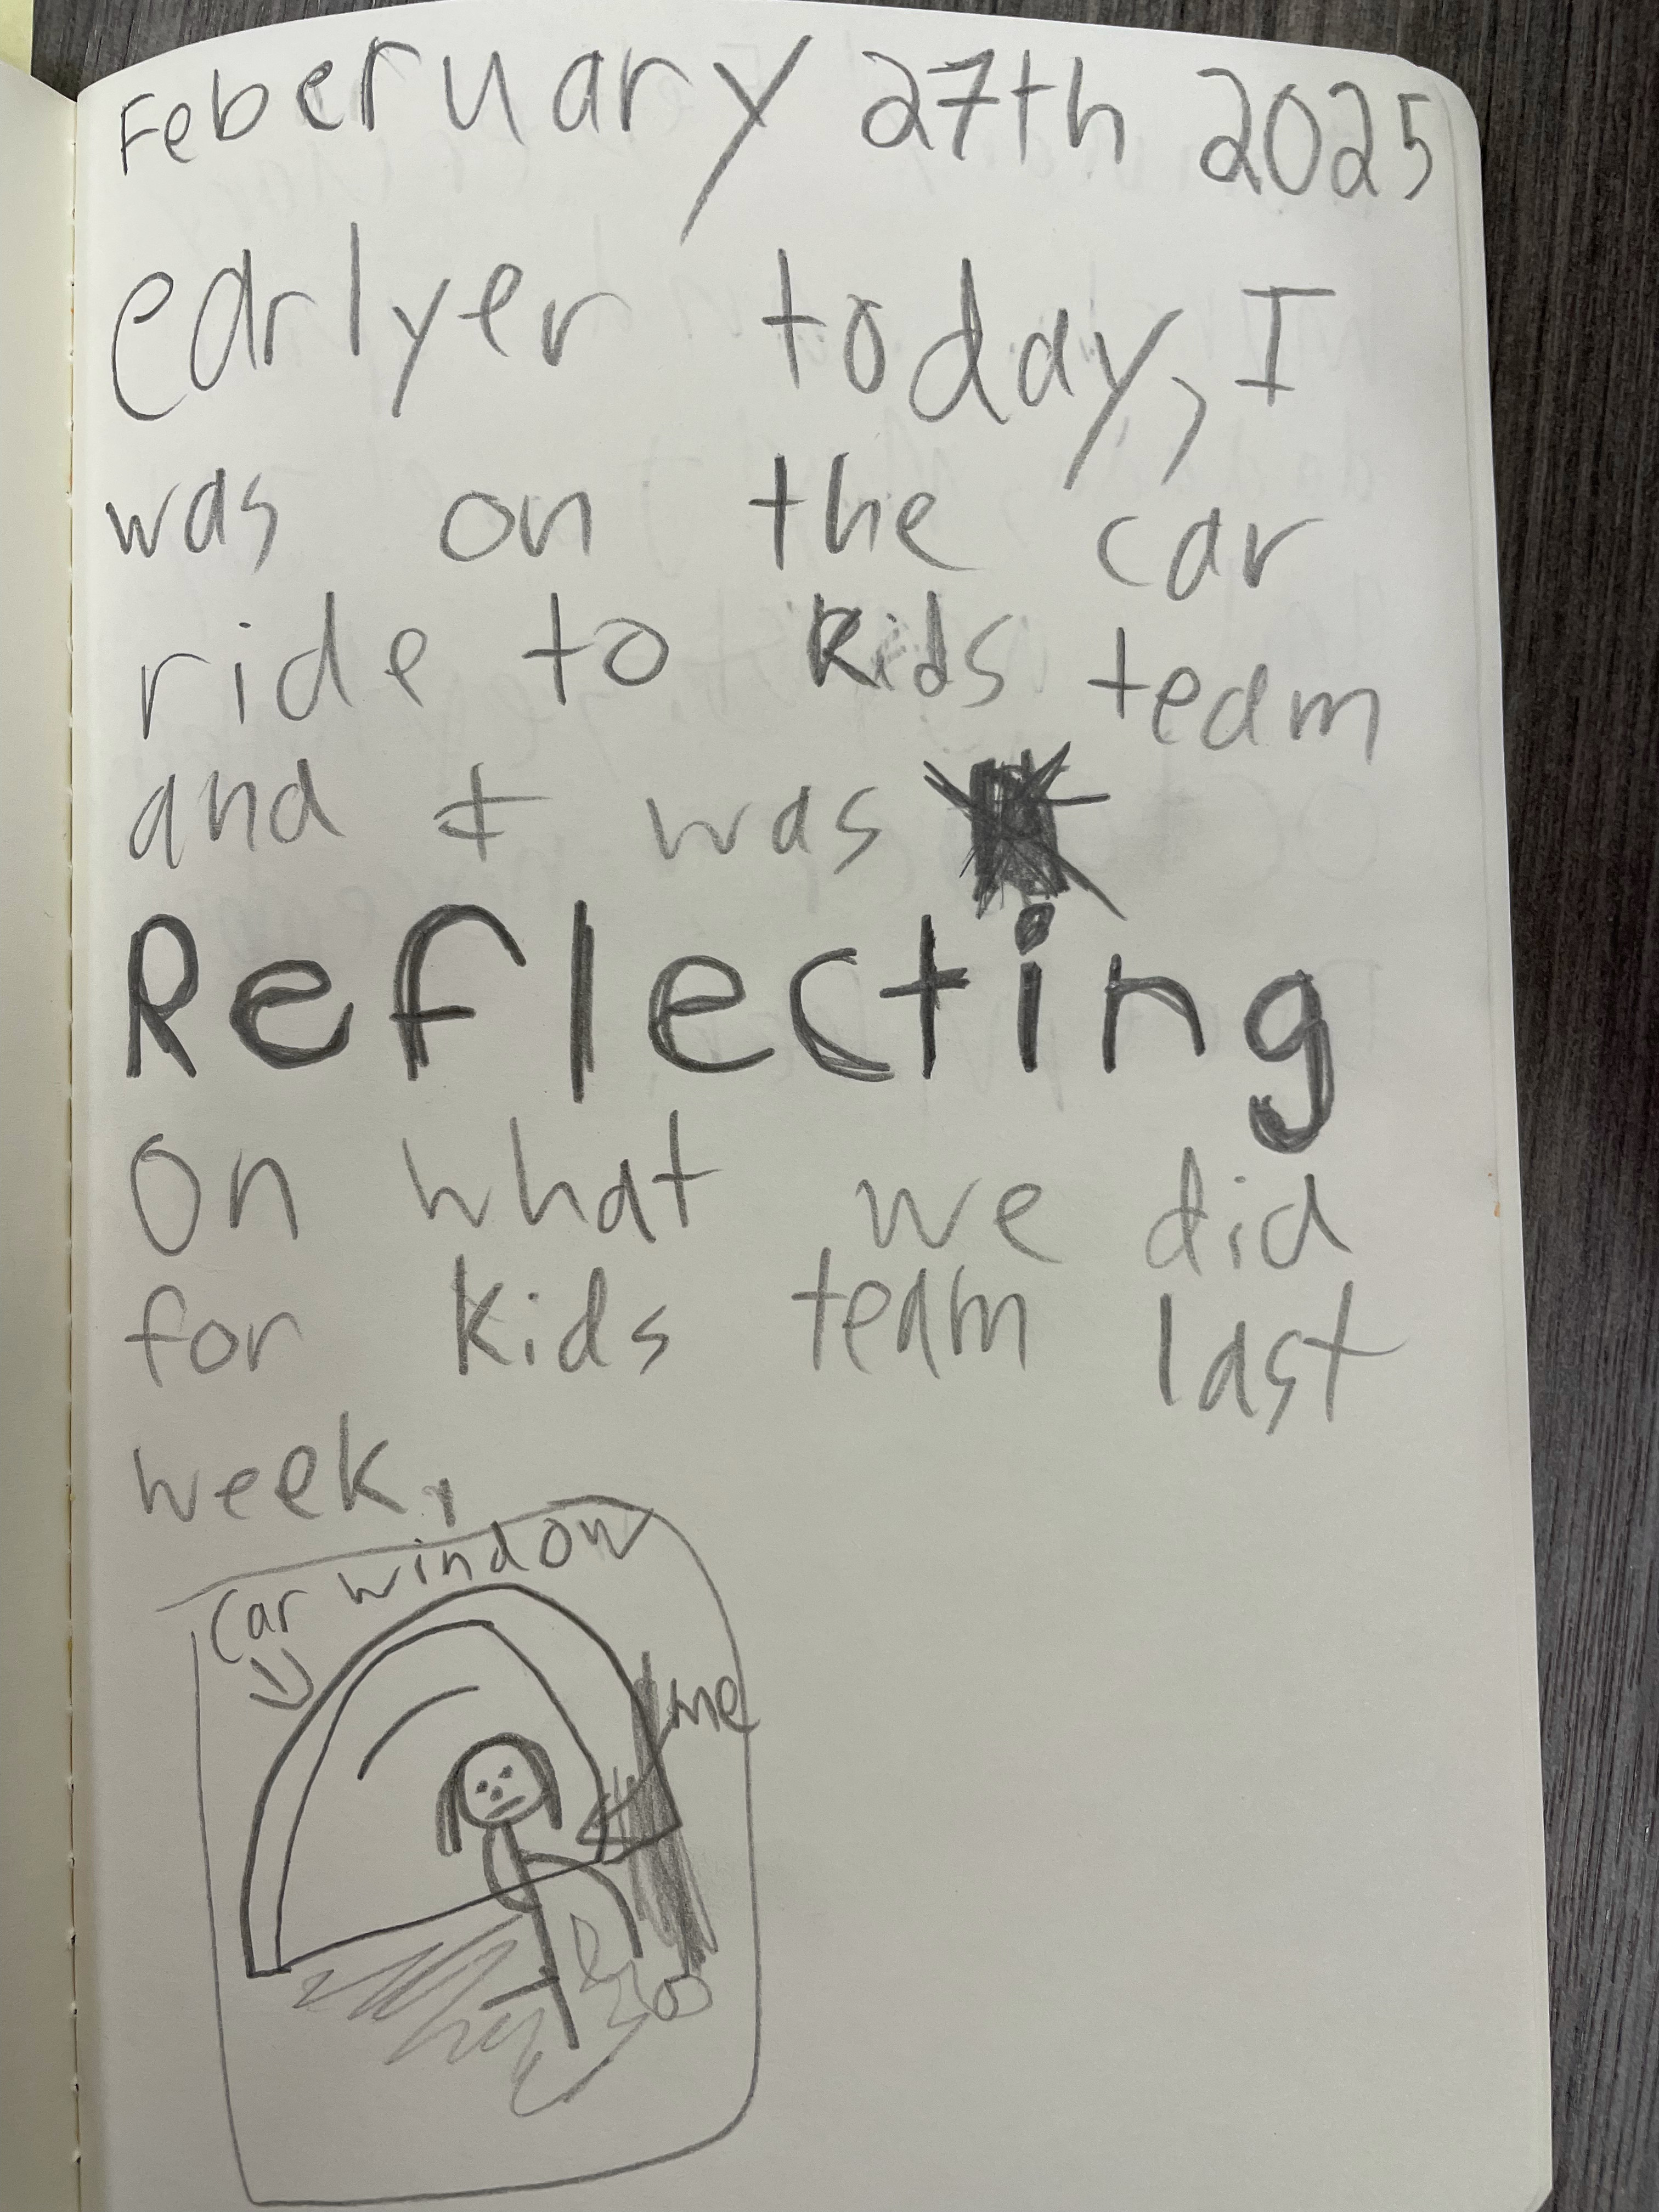 Feberuary 27th 2025
earlyer today, I
was on the car
ride to kids team
and I was
Reflecting
on what we did
for kids team last
week,
Car window
me